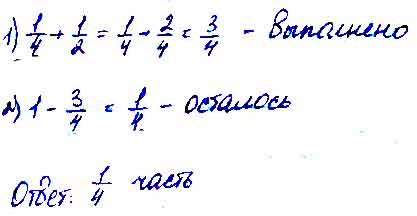 1) 1/4 + 1/2 = 1/4 + 2/4 = 3/4 - выполнено
2) 1 - 3/4 = 1/4 - осталось
Ответ: 1/4 часть